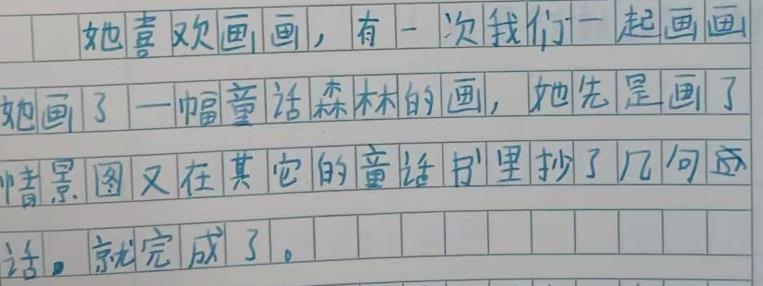 她喜欢画画，有一次我们一起画画
她画了一幅童话森林的画，她先是画了
情景图又在其它的童话书里抄了几句
话。就完成了。